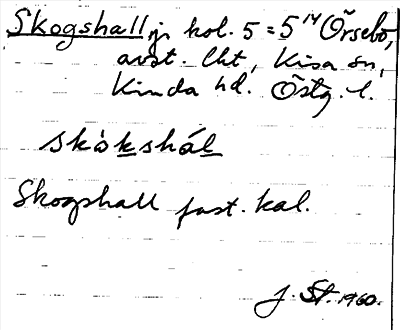 Skogshall, jr kol. 5 = 5¹⁴ Örsebo,
avst. Cht, Kisa sn,
Kinda hd. Östg. l.
skòkshál
Skogshall fast. kal.
J. St. 1960.